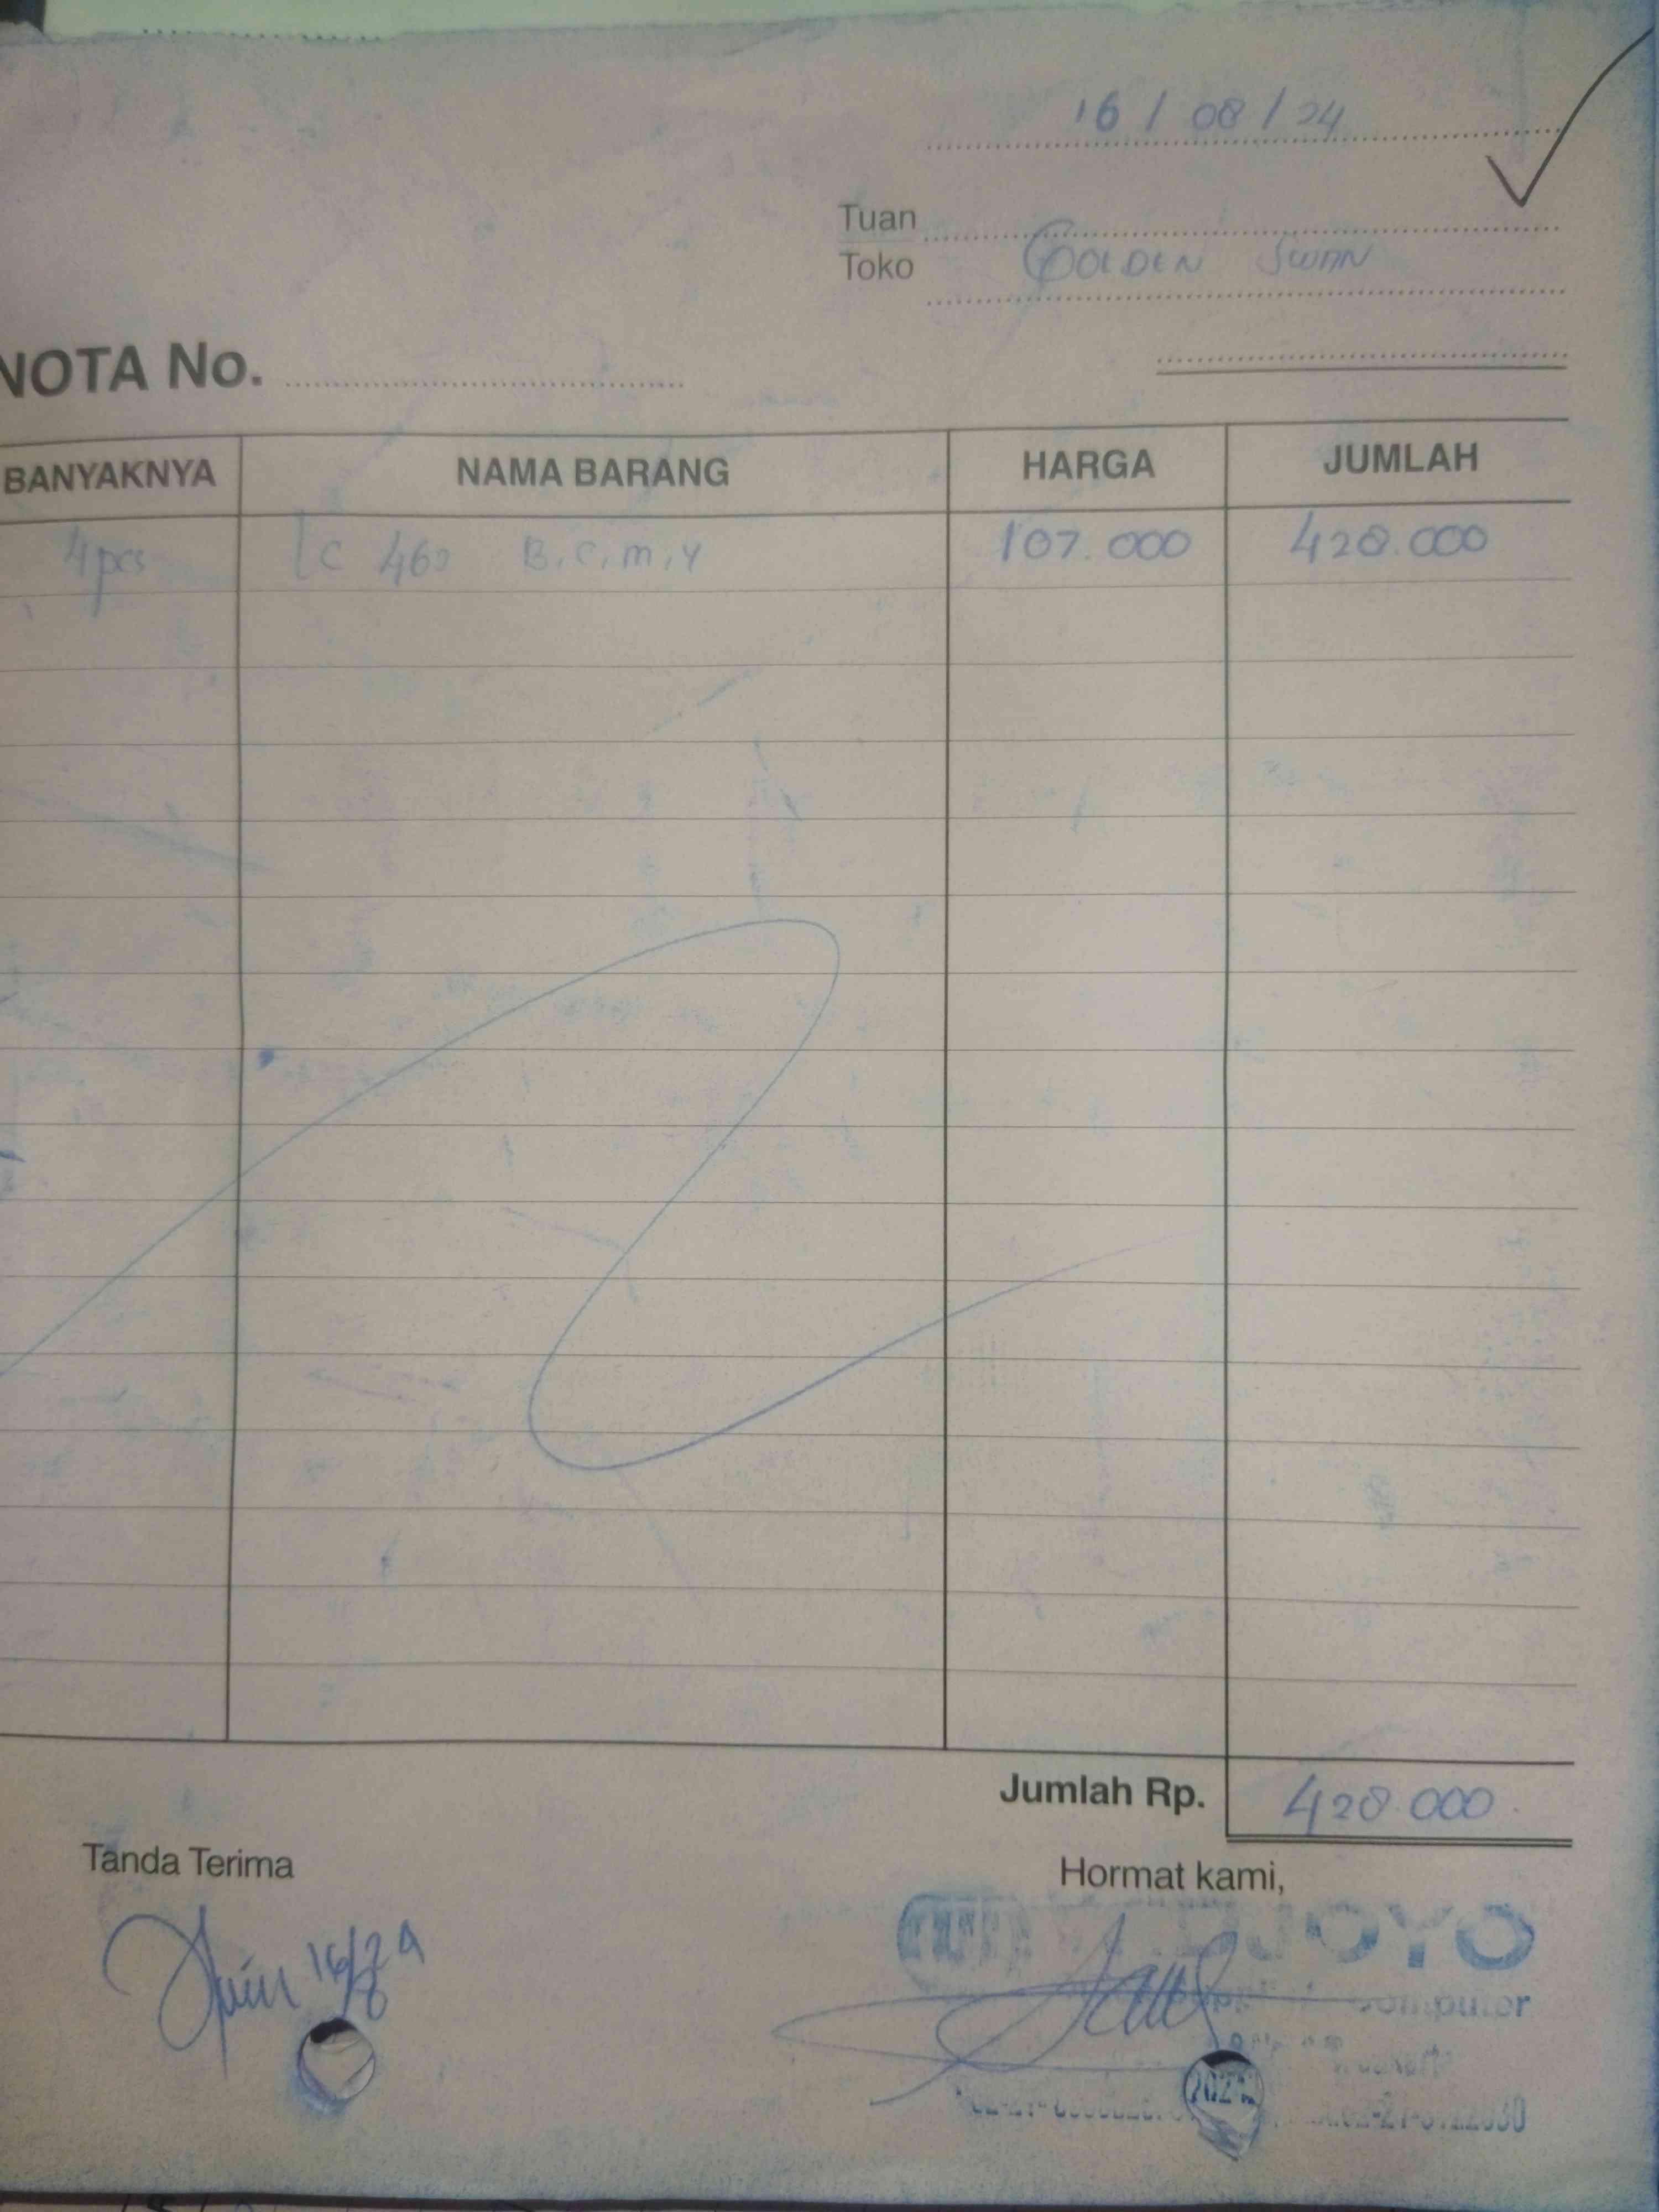 16 / 08 / 24
Tuan
Toko GOLDEN SWAN
NOTA No.
BANYAKNYA NAMA BARANG HARGA JUMLAH
4 pcs lc 460 B, C, m, Y 107.000 428.000
Jumlah Rp. 428.000
Tanda Terima Hormat kami,
JOYO
Computer